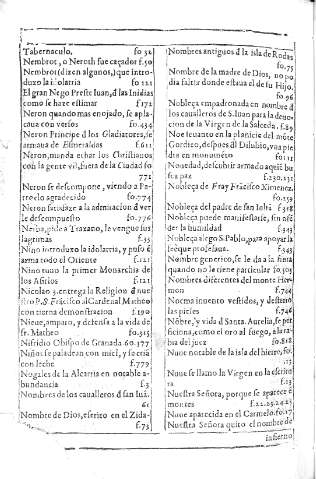 Tabernaculo, fo 52
Nembrot, o Neroth fue caçador f.50
Nembrot (dizen algunos,) que intro-
duzo la idolatria fo 121
El gran Nego Preste Iuan, d las Inidias
como se haze estimar f.172
Neron quando mas enojado, se apla-
caua con versos fo.434
Neron Principe d los Gladiatores, se
armaua de Esmeraldas f.611
Neron, manda echar los Christianos
con la gente vil, fuera de la Ciudad fo
771
Neron se descompone, viendo a Pa-
tro lo agradecido fo.774
Neron satisfaze a la admiracion d ver
le descompuesto fo.776
Nerua, pide a Traxano, le vengue sus
lagrimas f.35
Nino introduzo la idolatria, y puso d
arma todo el Oriente f.121
Nino tuuo la primer Monarchia de
los Assirios f.121
Nicolao 3. entrega la Religion d nue
stro P.S. Frácisco al Cardenal Matheo
con tierna demonstracion f.190
Nieue, amparo, y defensa a la vida de
fr. Matheo fo.315
Nisfridio Obispo de Granada. 60.177
Niños se paladean con miel, y se criã
con leche f.779
Nogales de la Alcarria en notable a-
bundancia f.3
Nombres de los cauallero s d san luã.
61
Nombre de Dios, escrito en el Zida-
f.73
Nombres antiguos d la isla de Rodas
fo.75
Nombre de la madre de Dios, no po
dia faltar donde estaua el de su Hijo.
fo.96
Nobleça empadronada en nombre d
los caualleros de S.Iuan para la deuo-
cion de la Virgen de la Salceda. f.49
Noe leuanto en la planicie del mõte
Gordieo, despues del Diluuio, vna pie
dra en monumẽto fo 115
Nouedad, descubrir armado aquel bus
ca paz f.230.231
Nobleça de Fray Frãcisco Ximenez.
fo.159
Nobleça del padre de san Iosi f.318
Nobleça puede manifestarse, sin ofẽ
der la humildad f.343
Nobleça alego S.Pablo, para apoyar la
Iesus f.343
Nombre generico, se le da a la fiera
quando no le tiene particular fo.505
Nombres diferentes del monte Her-
f.704
Norma inuento vestidos, y desterro
las pieles f.746
Nõbre, y vida d Santa. Aurelia, se per
ficiona, como el oro al fuego, a la ra-
bia del juez fo.818
Nuue notable de la isla del hierro, fo.
.13
Nuue se llamo la Virgen en la escritu
ra f.13
Nuestra Señora, porque se aparece ẽ
montes f.22.23.24.25
Nuue aparecida en el Carmelo. fo.17
Nuestra Señora quito el nombre de
infierno